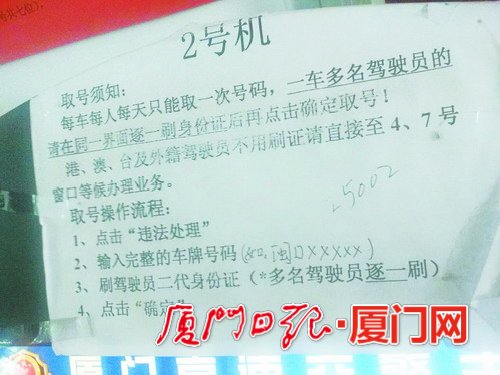 号共七位),
2号机
取号须知:
每车每人每天只能取一次号码,一车多名驾驶员的
请在同一界面逐一刷身份证后再点击确定取号!
港、澳、台及外籍驾驶员不用刷证请直接至4、7号
窗口等候办理业务。
5002
取号操作流程:
1、点击“违法处理”
2、输入完整的车牌号码(如,闽DXXXXX)
3、刷驾驶员二代身份证(*多名驾驶员逐一刷)
4、点击“确定”
厦门日报·厦门网
厦门